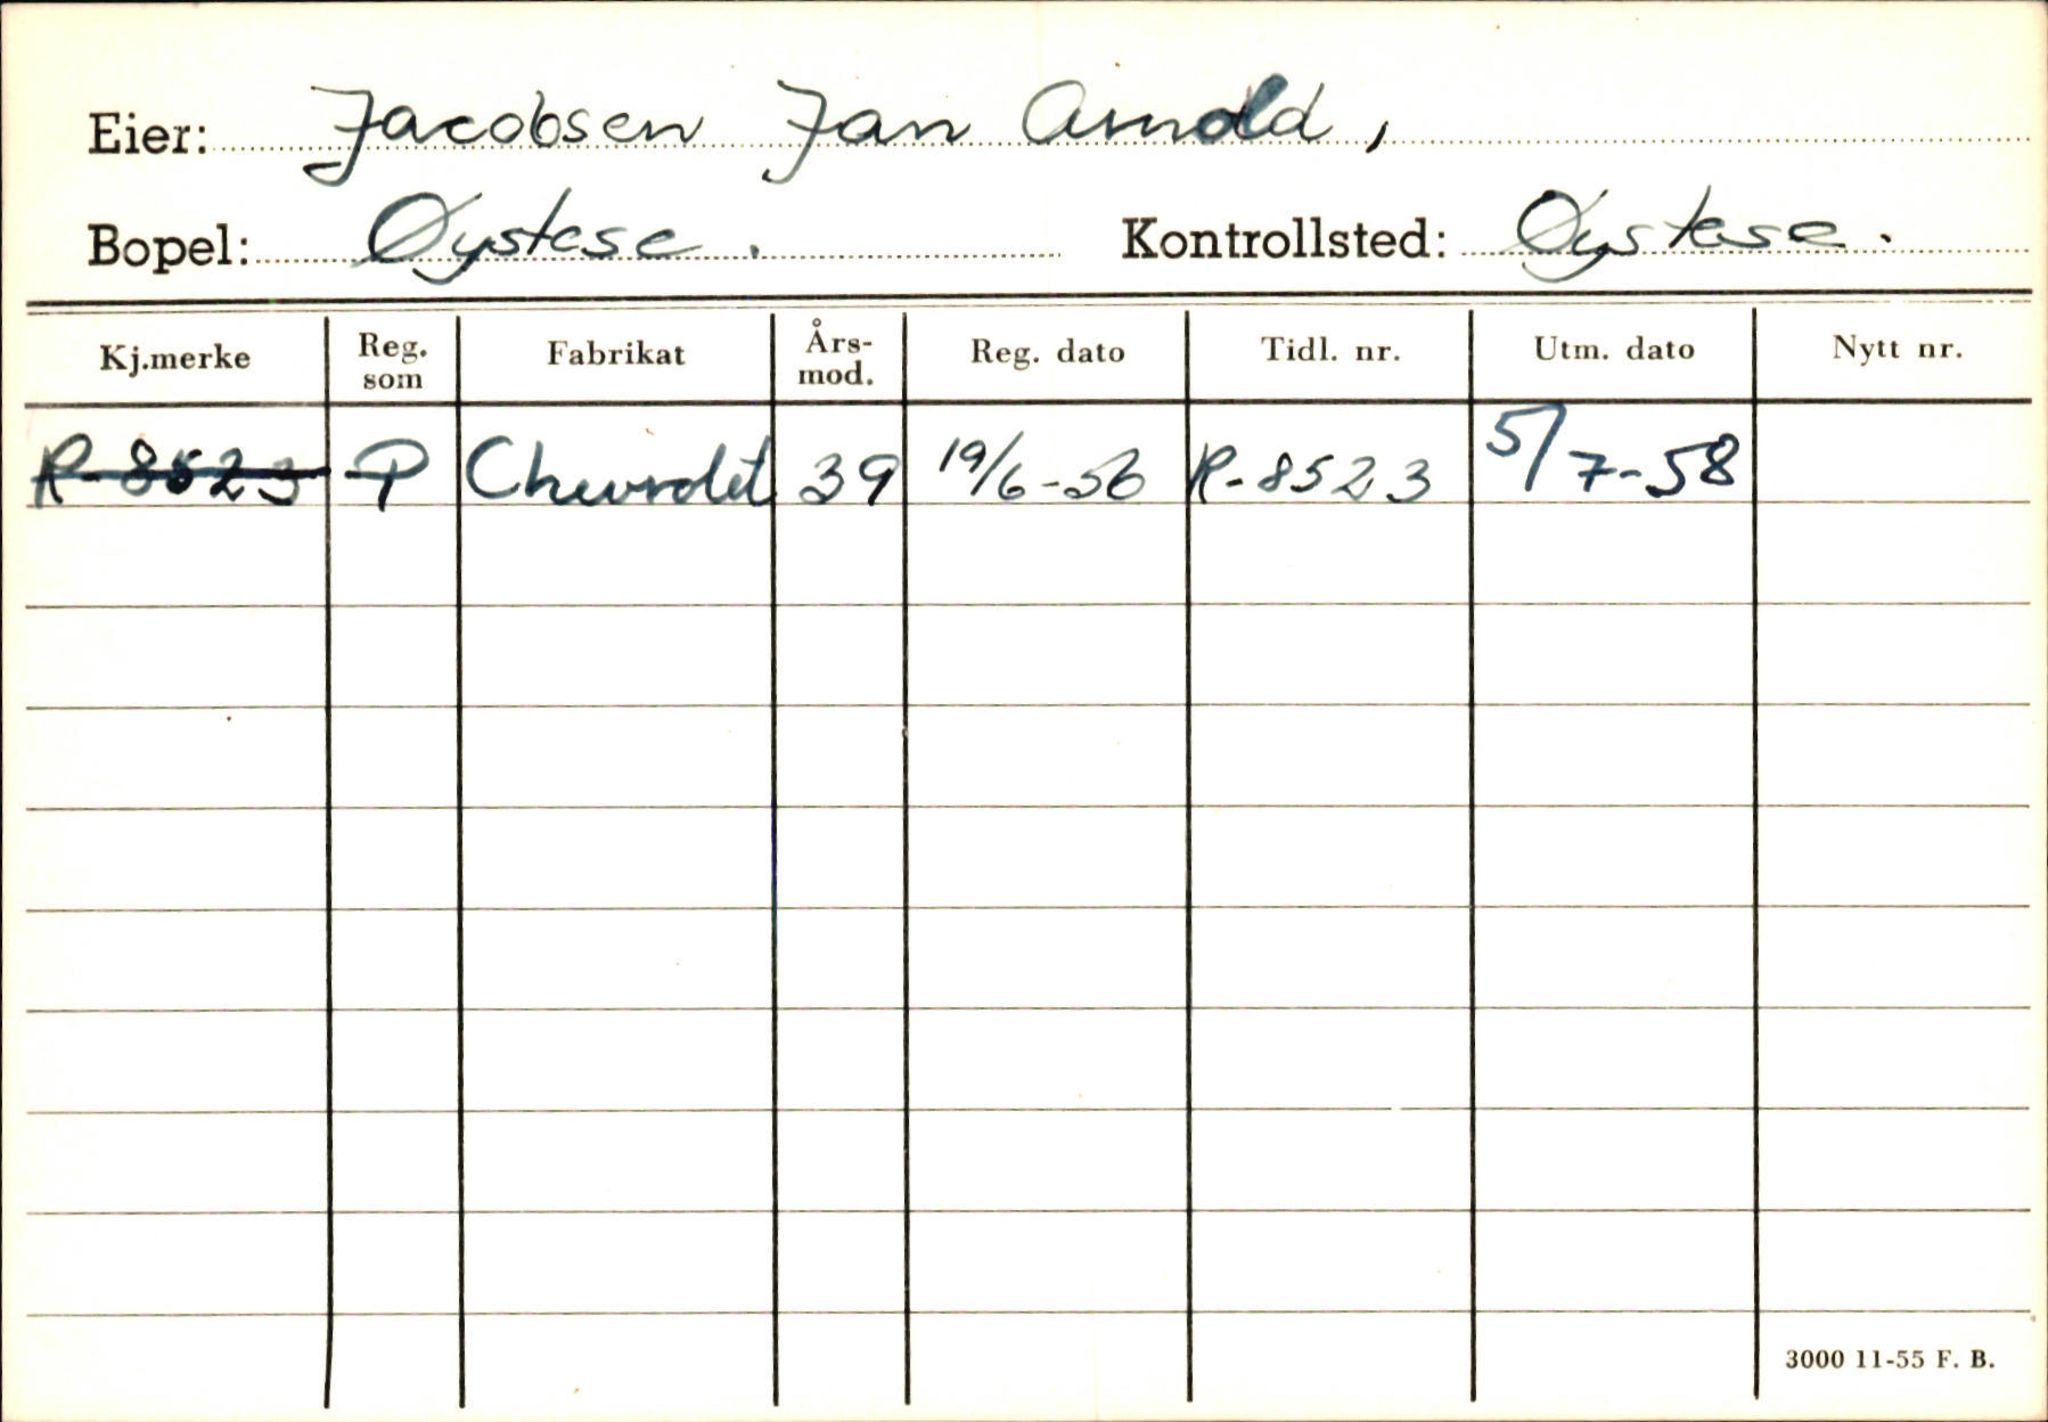 Eier: Jacobsen Jan Arnold,
Bopel: Øystese. Kontrollsted: Øystese.
Kj.merke Reg. som Fabrikat Års-mod. Reg. dato Tidl. nr. Utm. dato Nytt nr.
R-8523 P Chevrolet 39 19/6-56 R-8523 5/7-58
3000 11-55 F. B.